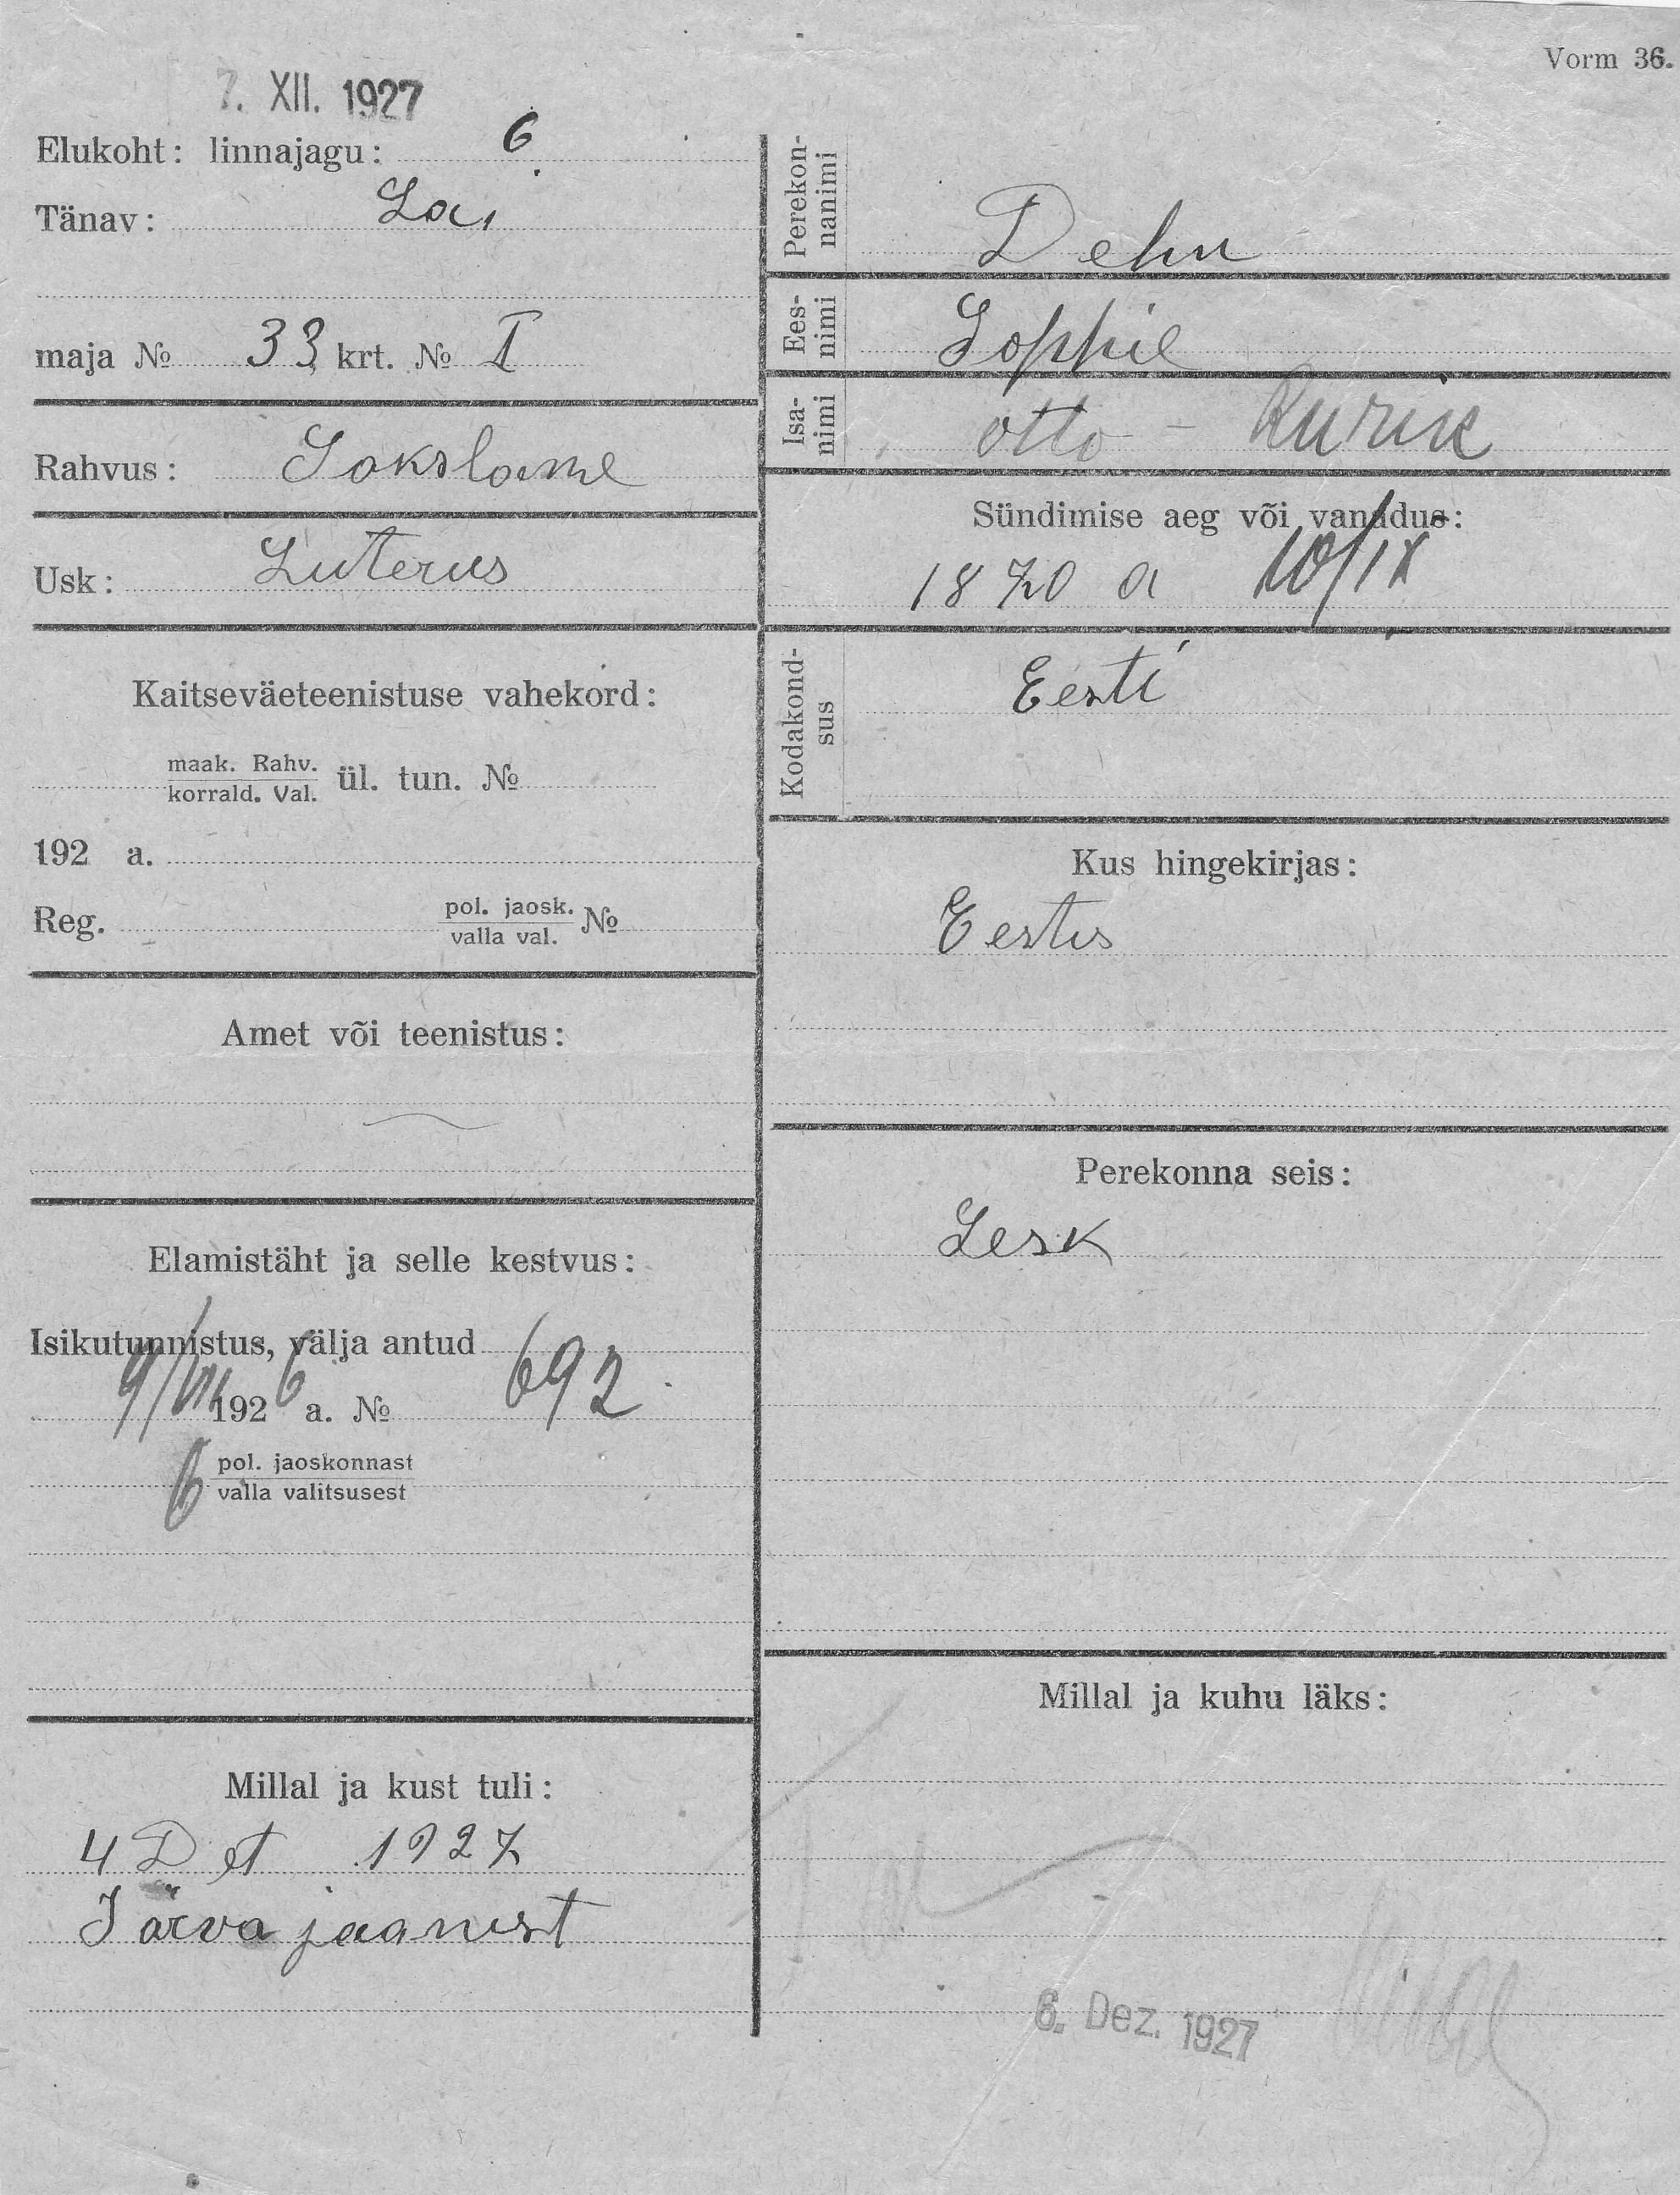 Vorm 36.
7. XII. 1927
Elukoht: linnajagu: 6
Tänav: Lai
maja № 33 krt. № I
Rahvus: Sakslane
Usk: Luterus
Kaitseväeteenistuse vahekord:
maak. Rahv.
korrald. Val. ül. tun. №
192 a.
Reg. pol. jaosk. №
valla val.
Amet või teenistus:
Elamistäht ja selle kestvus:
Isikutunnistus, välja antud
9/VII 1926 a. № 692
6 pol. jaoskonnast
valla valitsusest
Millal ja kust tuli:
4 Det 1927
Järva jaanist
Perekon-
nanimi Dehn
Ees-
nimi Sophie
Isa-
nimi Otto -
Sündimise aeg või vanadus:
1870 a 10/IX
Kodakond-
sus Eesti
Kus hingekirjas:
Eestis
Perekonna seis:
Lesk
Millal ja kuhu läks:
6. Dez. 1927